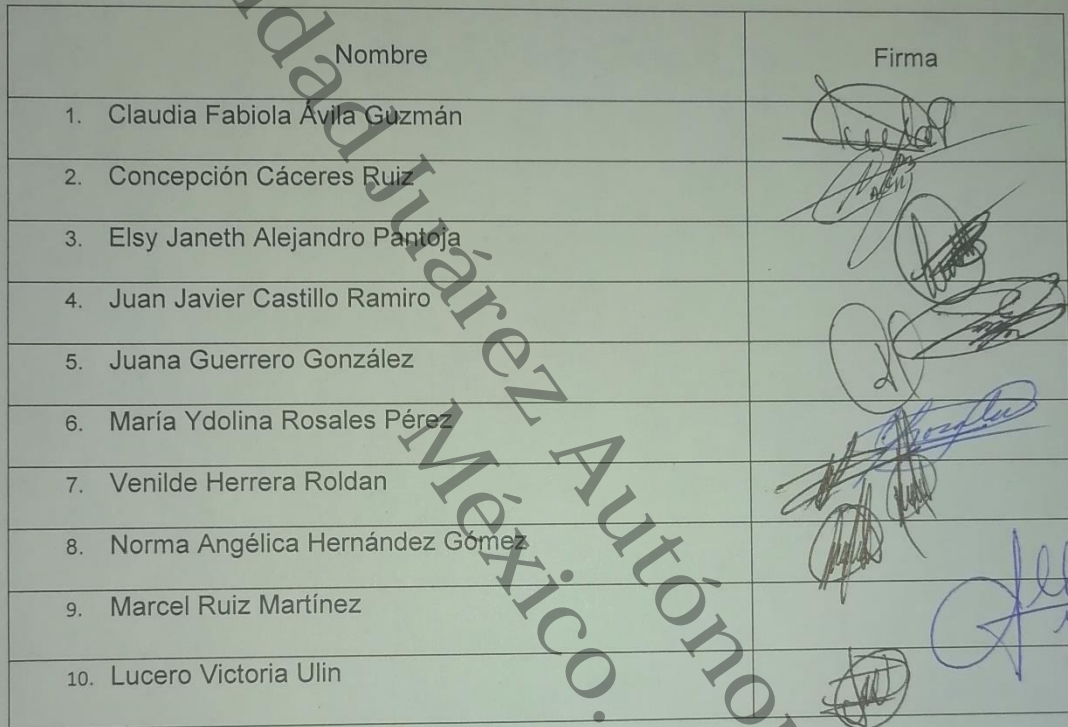 Nombre Firma
1. Claudia Fabiola Ávila Guzmán
2. Concepción Cáceres Ruiz
3. Elsy Janeth Alejandro Pantoja
4. Juan Javier Castillo Ramiro
5. Juana Guerrero González
6. María Ydolina Rosales Pérez
7. Venilde Herrera Roldan
8. Norma Angélica Hernández Gómez
9. Marcel Ruiz Martínez
10. Lucero Victoria Ulin
Juárez
México.